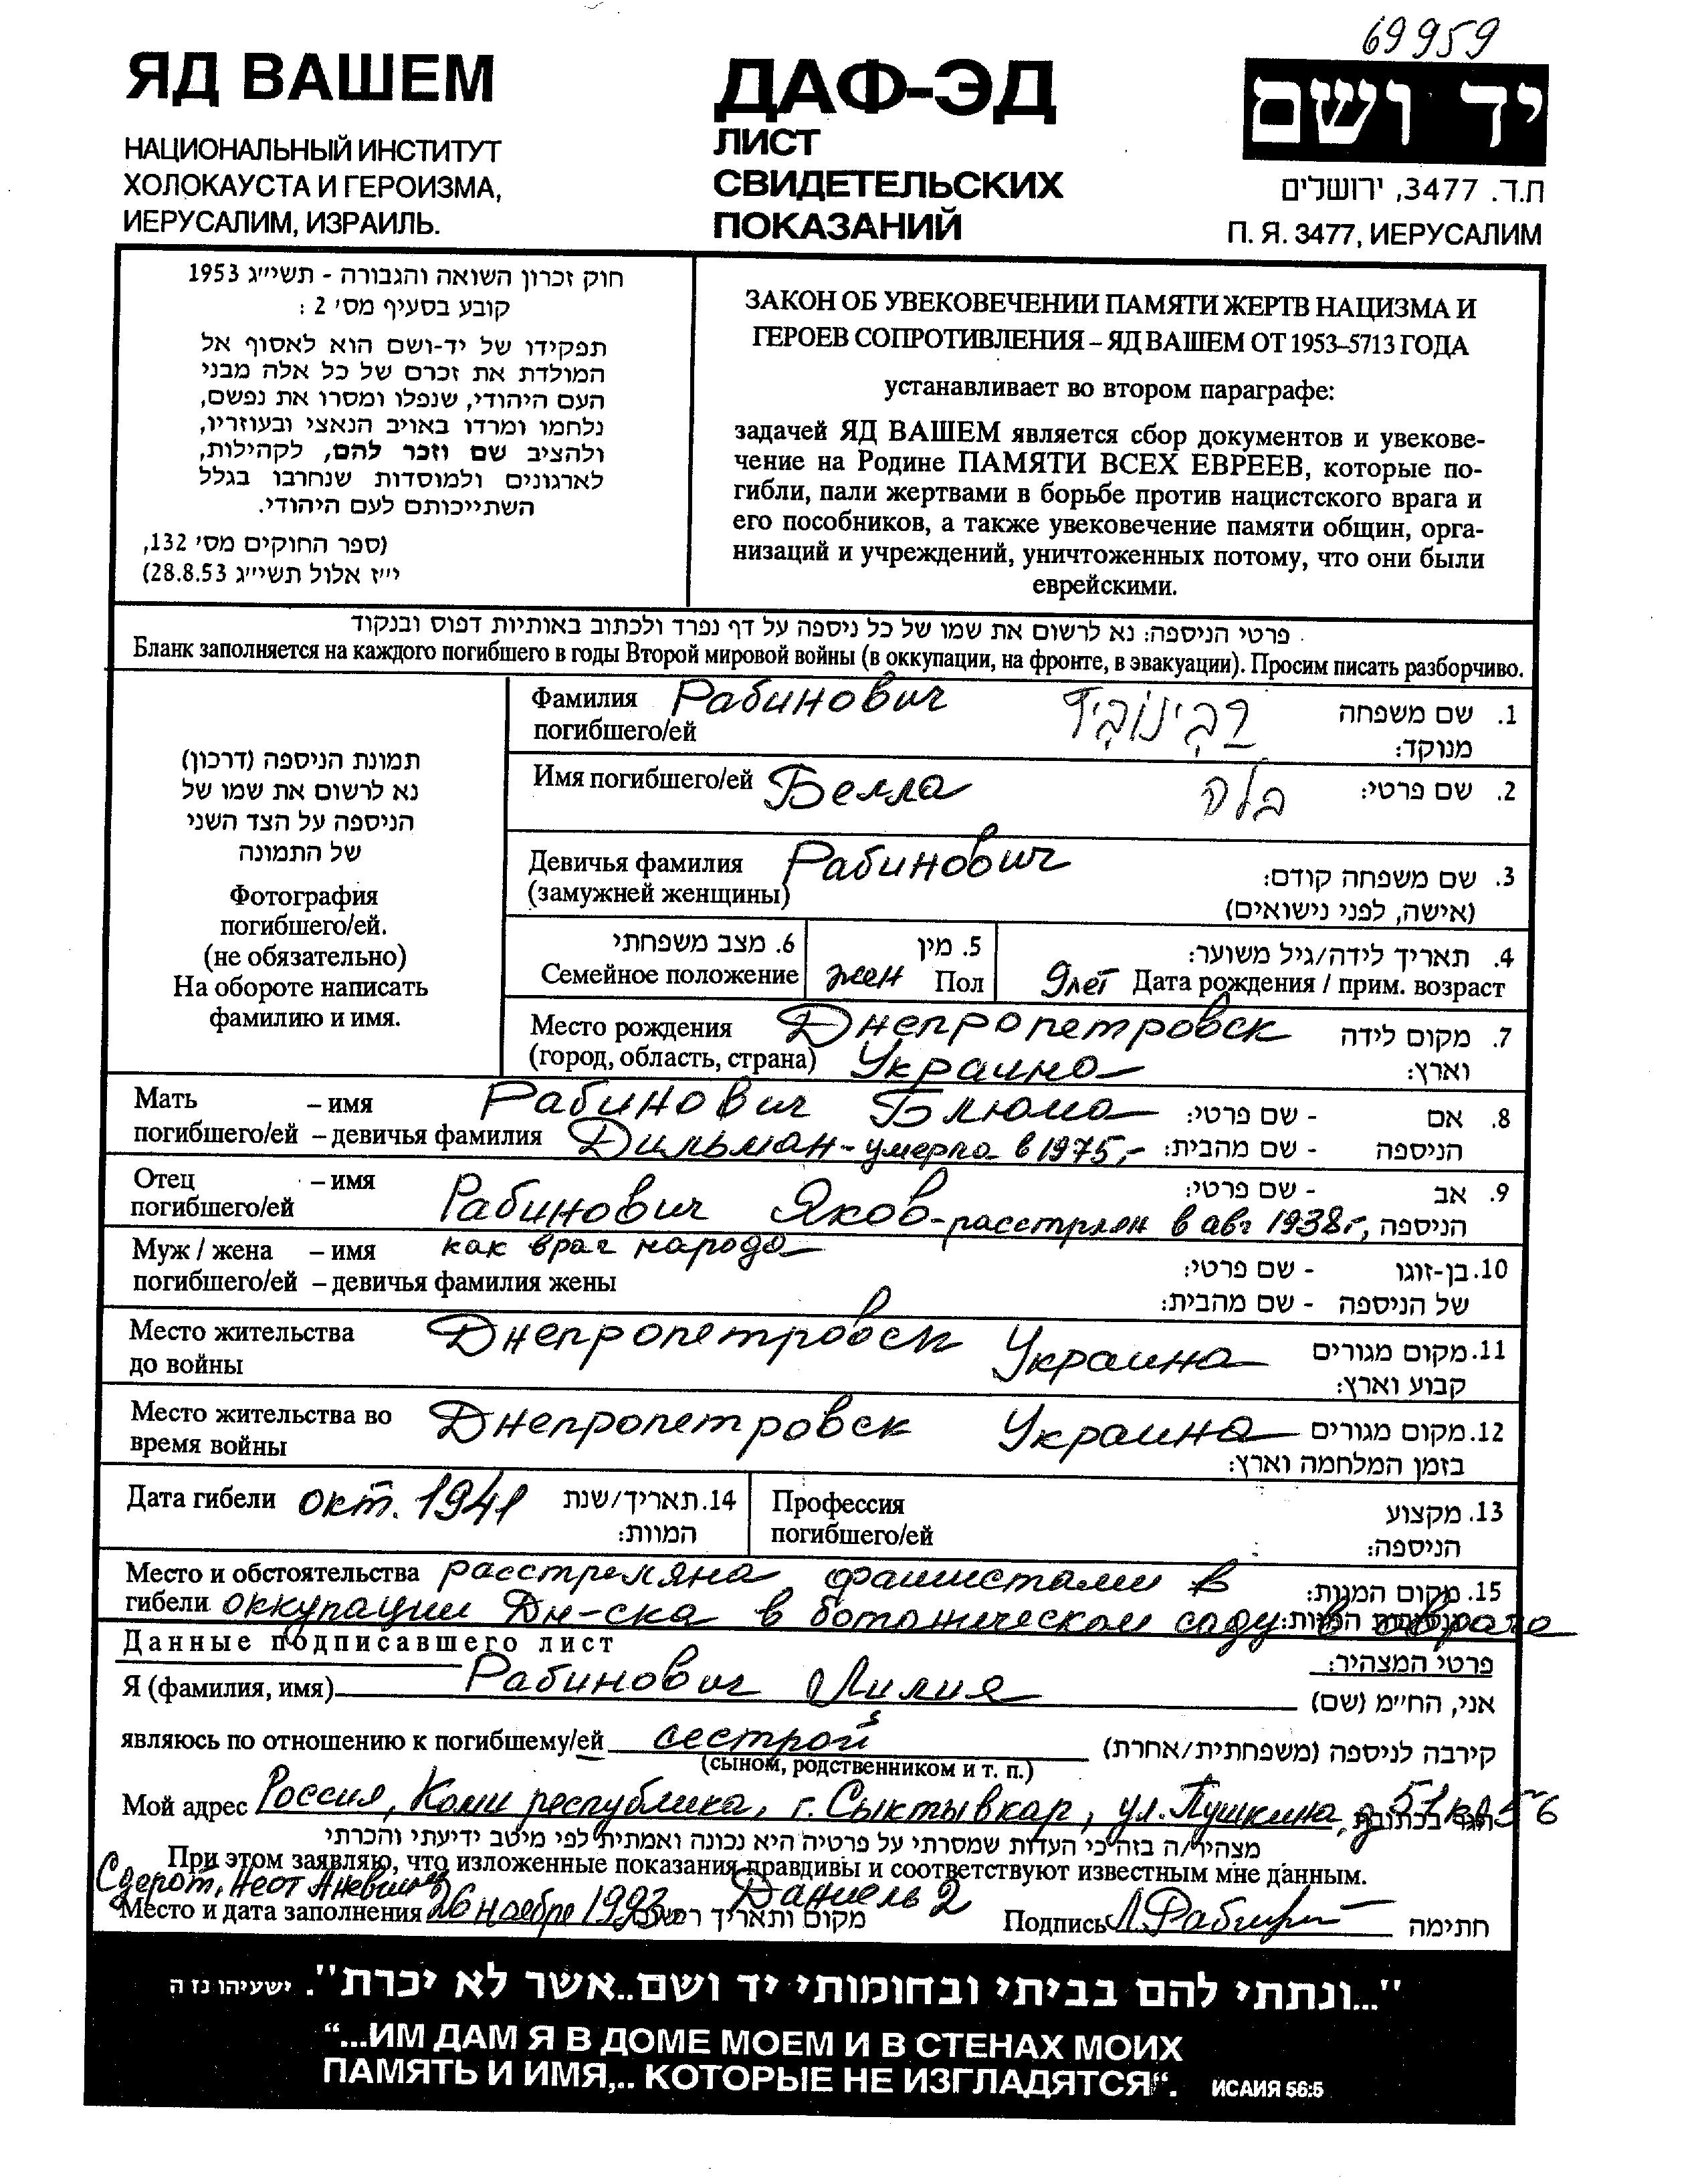 69959
ЯД ВАШЕМ
НАЦИОНАЛЬНЫЙ ИНСТИТУТ
ХОЛОКАУСТА И ГЕРОИЗМА,
ИЕРУСАЛИМ, ИЗРАИЛЬ.
ДАФ-ЭД
ЛИСТ
СВИДЕТЕЛЬСКИХ
ПОКАЗАНИЙ
יד ושם
ת.ד. 3477, ירושלים
П. Я. 3477, ИЕРУСАЛИМ
חוק זכרון השואה והגבורה - תשי״ג 1953
קובע בסעיף מס׳ 2 :
תפקידו של יד-ושם הוא לאסוף אל
המולדת את זכרם של כל אלה מבני
העם היהודי, שנפלו ומסרו את נפשם,
נלחמו ומרדו באויב הנאצי ובעוזריו,
ולהציב שם וזכר להם, לקהילות,
לארגונים ולמוסדות שנחרבו בגלל
השתייכותם לעם היהודי.
(ספר החוקים מס׳ 132,
י״ז אלול תשי״ג 28.8.53)
ЗАКОН ОБ УВЕКОВЕЧЕНИИ ПАМЯТИ ЖЕРТВ НАЦИЗМА И
ГЕРОЕВ СОПРОТИВЛЕНИЯ – ЯД ВАШЕМ ОТ 1953–5713 ГОДА
устанавливает во втором параграфе:
задачей ЯД ВАШЕМ является сбор документов и увекове-
чение на Родине ПАМЯТИ ВСЕХ ЕВРЕЕВ, которые по-
гибли, пали жертвами в борьбе против нацистского врага и
его пособников, а также увековечение памяти общин, орга-
низаций и учреждений, уничтоженных потому, что они были
еврейскими.
פרטי הניספה: נא לרשום את שמו של כל ניספה על דף נפרד ולכתוב באותיות דפוס ובנקוד
Бланк заполняется на каждого погибшего в годы Второй мировой войны (в оккупации, на фронте, в эвакуации). Просим писать разборчиво.
תמונת הניספה (דרכון)
נא לרשום את שמו של
הניספה על הצד השני
של התמונה
Фотография
погибшего/ей.
(не обязательно)
На обороте написать
фамилию и имя.
Фамилия Рабинович רבינוביץ 1. שם משפחה
погибшего/ей מנוקד:
Имя погибшего/ей Белла בלה 2. שם פרטי:
Девичья фамилия Рабинович 3. שם משפחה קודם:
(замужней женщины) (אישה, לפני נישואים)
6. מצב משפחתי 5. מין 4. תאריך לידה/גיל משוער:
Семейное положение жен Пол 9 лет Дата рождения / прим. возраст
Место рождения Днепропетровск 7. מקום לידה
(город, область, страна) Украина וארץ:
Мать – имя Рабинович Блюма - שם פרטי: 8. אם
погибшего/ей – девичья фамилия Дильман - умерла в 1975,- - שם מהבית: הניספה
Отец – имя - שם פרטי: 9. אב
погибшего/ей Рабинович Яков - расстрелян в авг 1938г, הניספה
Муж / жена – имя как враг народа - שם פרטי: 10. בן-זוגו
погибшего/ей – девичья фамилия жены - שם מהבית: של הניספה
Место жительства Днепропетровск Украина 11. מקום מגורים
до войны קבוע וארץ:
Место жительства во Днепропетровск Украина 12. מקום מגורים
время войны בזמן המלחמה וארץ:
Дата гибели окт. 1941 14. תאריך/שנת Профессия 13. מקצוע
המוות: погибшего/ей הניספה:
Место и обстоятельства расстреляна фашистами в 15. מקום המוות:
гибели оккупации Дн-ска в ботаническом саду в овраге המוות:
Данные подписавшего лист פרטי המצהיר:
Я (фамилия, имя) Рабинович Лилия אני, הח״מ (שם)
являюсь по отношению к погибшему/ей сестрой קירבה לניספה (משפחתית/אחרת)
(сыном, родственником и т. п.)
Мой адрес Россия, Коми республика, г. Сыктывкар, ул. Пушкина, д 51 кв 56
מצהיר/ה בזה כי העדות שמסרתי על פרטיה היא נכונה ואמתית לפי מיטב ידיעתי והכרתי
При этом заявляю, что изложенные показания правдивы и соответствуют известным мне данным.
Сдерот, Даниель 2
Место и дата заполнения 26 ноября 1993 מקום ותאריך Подпись חתימה
"...ונתתי להם בביתי ובחומותי יד ושם..אשר לא יכרת". ישעיהו נז ה
“...ИМ ДАМ Я В ДОМЕ МОЕМ И В СТЕНАХ МОИХ
ПАМЯТЬ И ИМЯ,.. КОТОРЫЕ НЕ ИЗГЛАДЯТСЯ“. ИСАИЯ 56:5